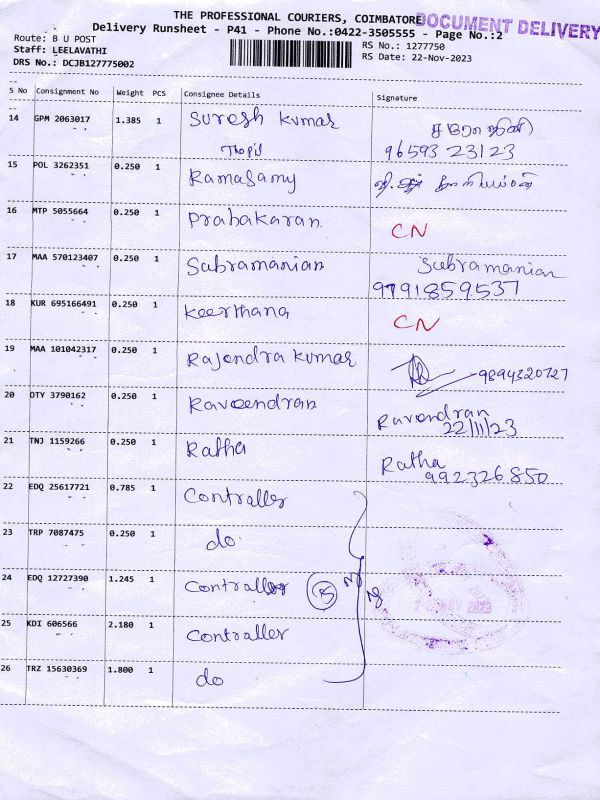 THE PROFESSIONAL COURIERS, COIMBATORE
DOCUMENT DELIVERY
Delivery Runsheet - P41 - Phone No.:0422-3505555 - Page No.:2
Route: B U POST
RS No.: 1277750
Staff: LEELAVATHI
RS Date: 22-Nov-2023
DRS No.: DCJB127775002
S No Consignment No Weight PCS Consignee Details Signature
14 GPM 2063017 1.385 1 Suresh Kumar
96593 23123
15 POL 3262351 0.250 1 Ramasamy
16 MTP 5055664 0.250 1 Prabakaran CN
17 MAA 570123407 0.250 1 Subramanian Subramanian
9791859537
18 KUR 695166491 0.250 1 Keerthana CN
19 MAA 101042317 0.250 1 Rajendra Kumar 9894320727
20 OTY 3790162 0.250 1 Raveendran Ravendran
22/11/23
21 TNJ 1159266 0.250 1 Ratha Ratha
992326850
22 EDQ 25617721 0.785 1 Contraller
23 TRP 7087475 0.250 1 do
24 EDQ 12727390 1.245 1 Contraller
25 KDI 606566 2.180 1 Contraller
NOV 2023
26 TRZ 15630369 1.800 1 do